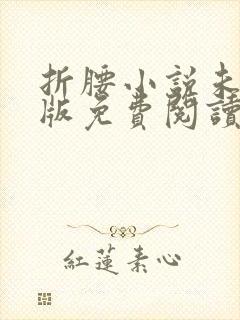 折腰小説未
版免費閱讀
紅蓮素心